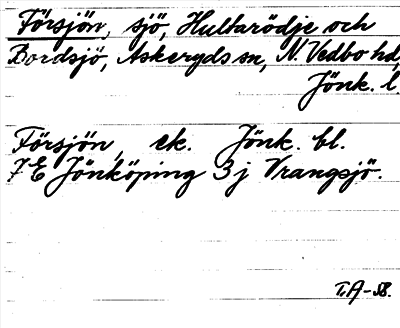 Försjön, sjö, Hultarödje och
Bordsjö, Askeryds sn, N. Vedbo hd,
Jönk. l.
Försjön, ek. Jönk. bl.
7 E Jönköping 3 j Vrangsjö.
T.A-58.